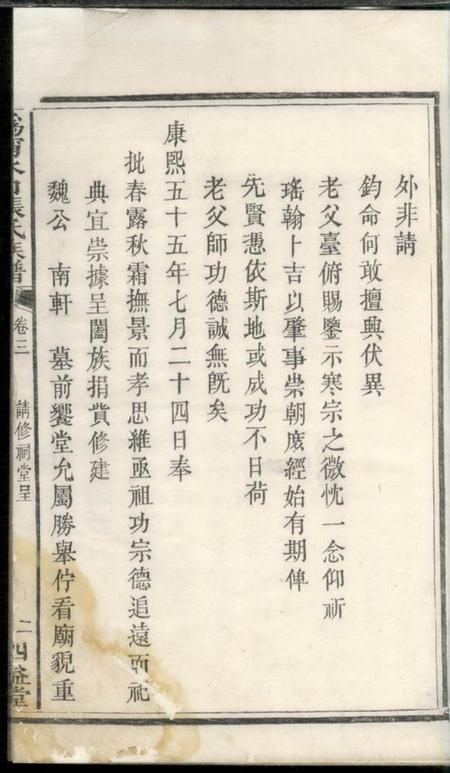 外非請
鈞命何敢擅興伏異
老父臺俯賜鑒示寒宗之微忱一念仰祈
瑤翰卜吉以肇事崇朝庶經始有期俾
先賢憑依斯地或成功不日荷
老父師功德誠無旣矣
康熙五十五年七月二十四日奉
批春露秋霜撫景而孝思維亟祖功宗德追遠而祀
典宜崇據呈闔族捐貲修建
魏公 南軒 墓前饗堂允屬勝舉佇看廟貌重
張氏族譜 卷三 請修祠堂呈 二 四益堂